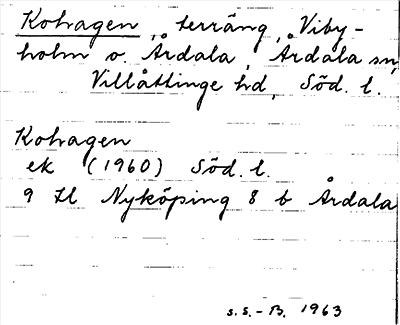 Kohagen, terräng, Viby-
holm o. Årdala, Årdala sn,
Villåttinge hd, Söd. l.
Kohagen
ek (1960) Söd. l.
9 H Nyköping 8 b Årdala
S.S.-B. 1963